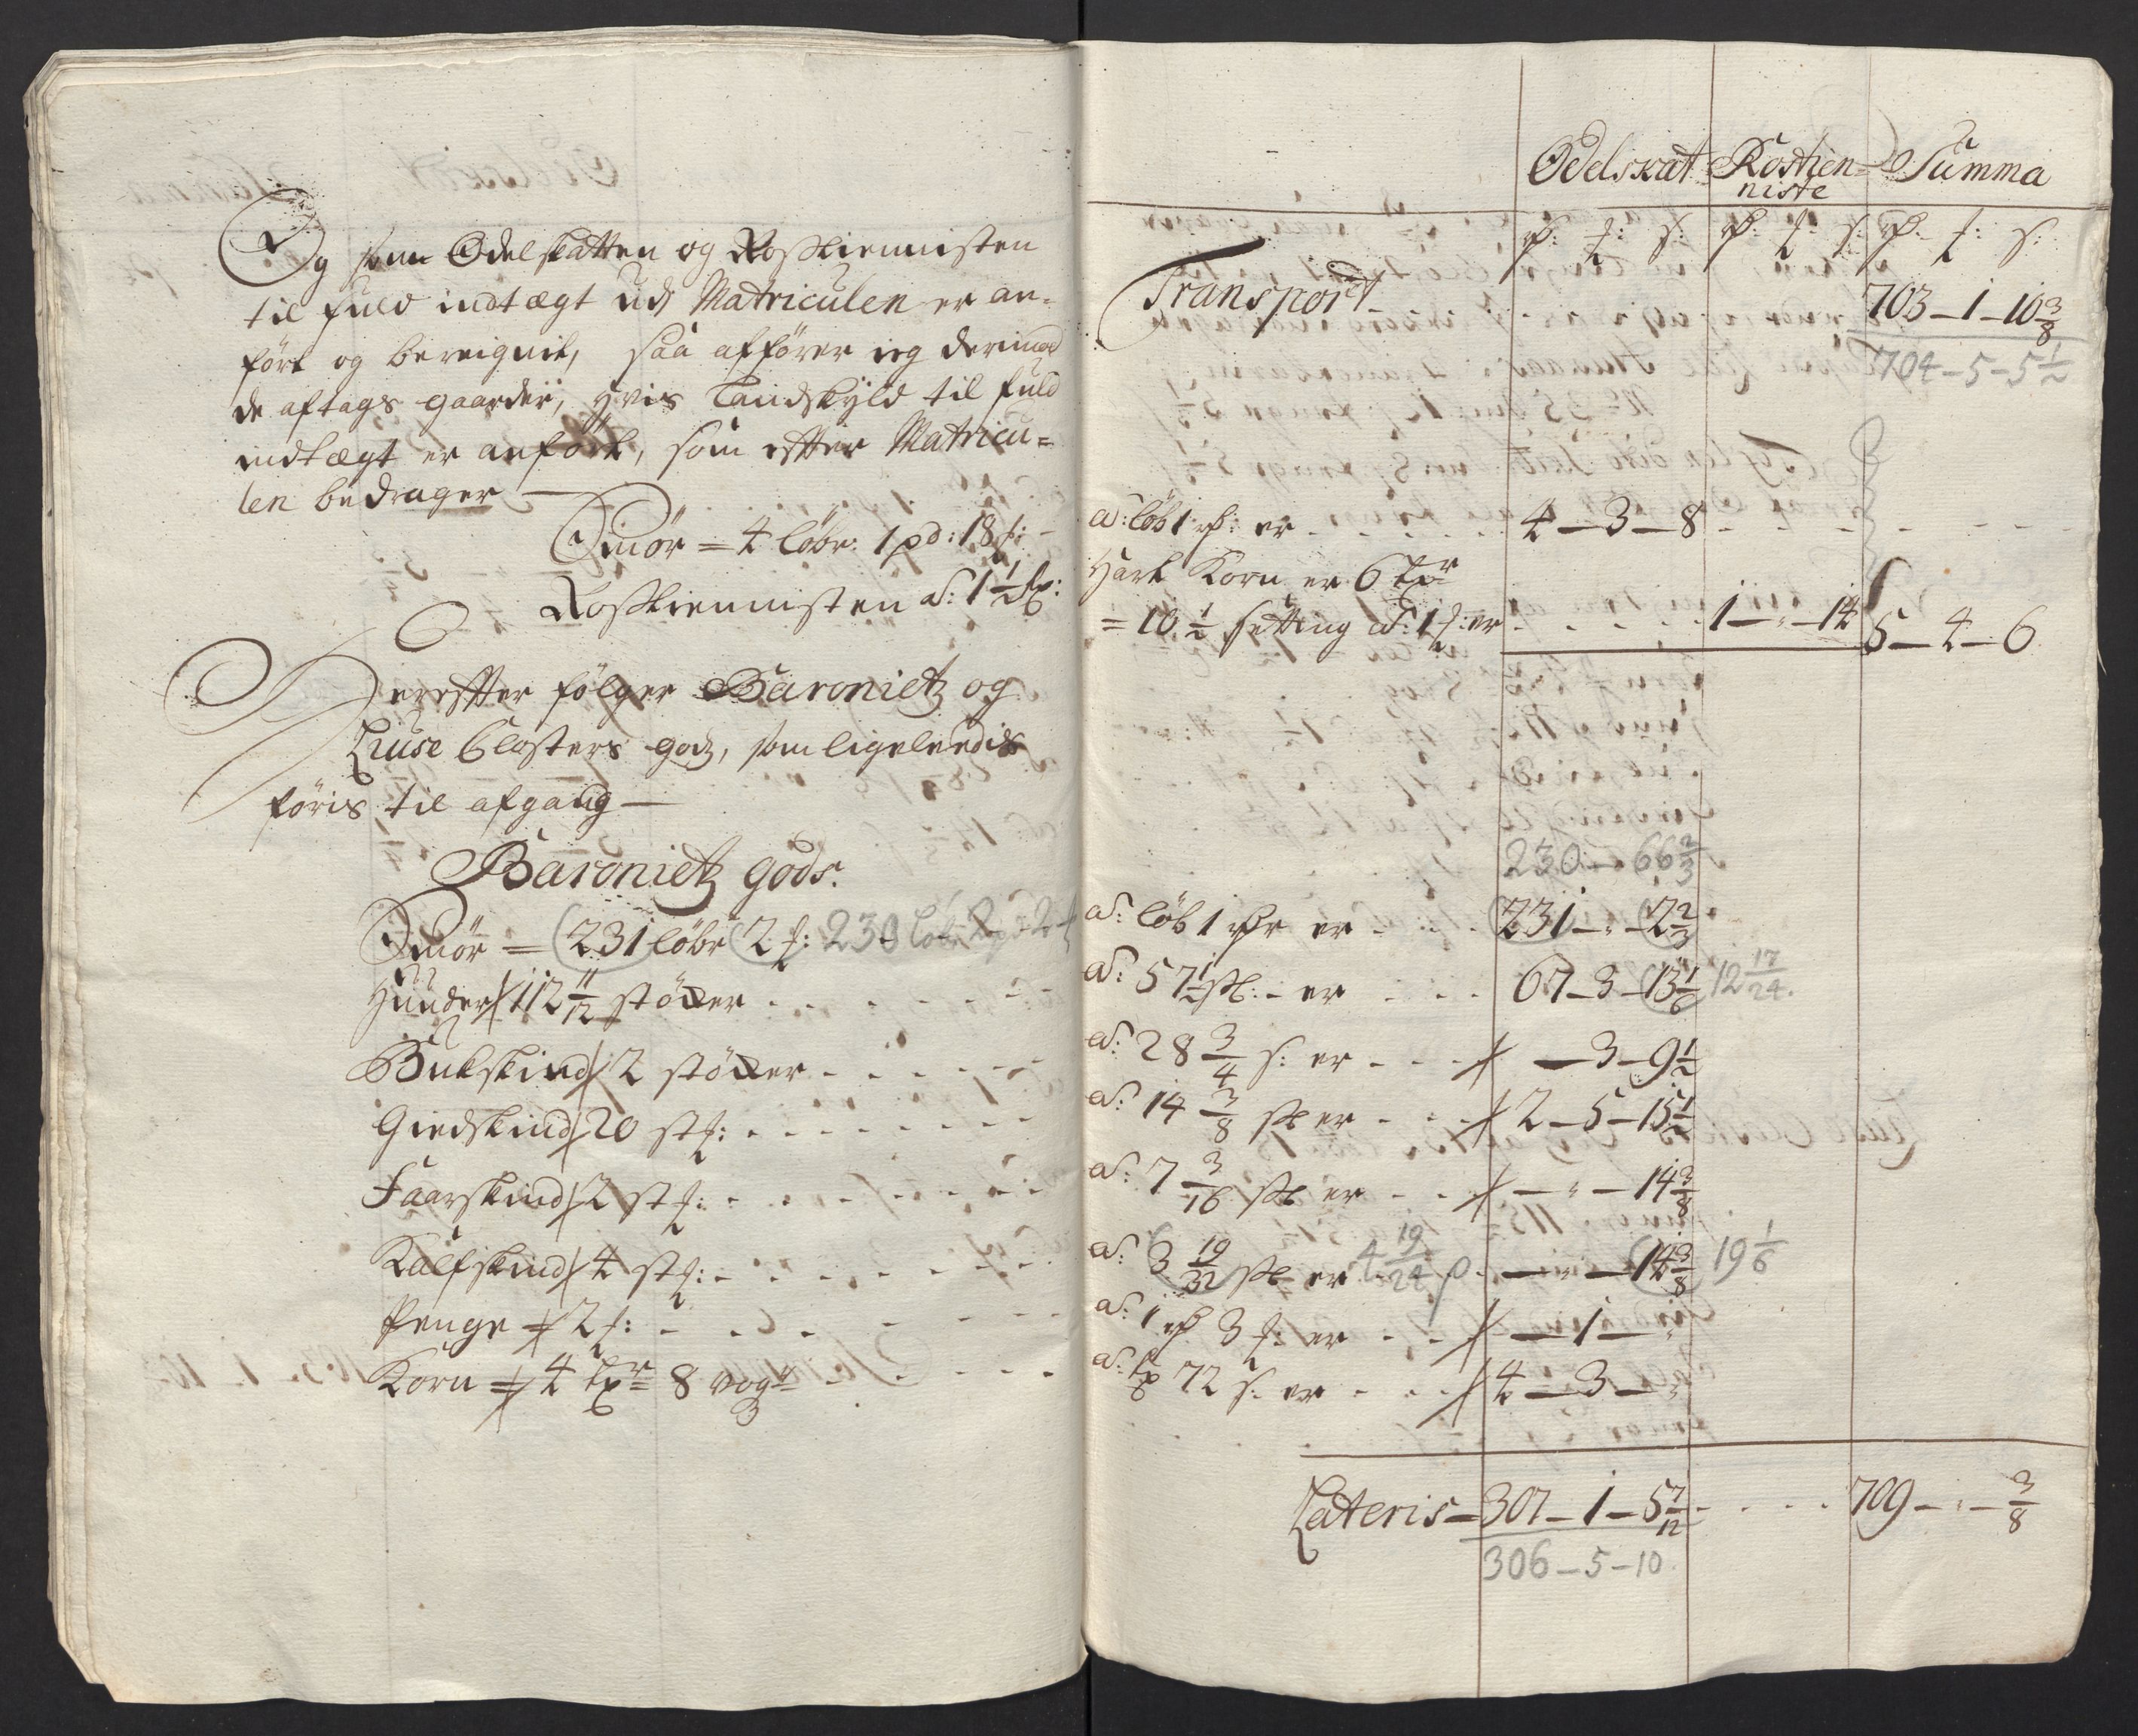 Og som Odelskatten og Rostiennisten
til fuld indtægt udj Matriculen er an-
fört og bereignit, saa afförer ieg derimod
de aftags gaarder, hvis Landskyld til fuld
indtægt er anfört, som efter Matricu=
len bedrager —
Smör = 4 löber 1 pd: 18 #:
Rostiennisten a: 1½
Derefter fölger Baronietz og
Liuse Closters godz, som ligeleedis
föris til afgang —
Baronietz gods.
Smör = 231 löber 2 #: 230 løber 2 pd 2 #
Huuder 112 11/12 stöcker
Bukskind 2 stöcker
Giedskind 20 st#:
Faarskind 2 st#:
Kalfskind 4 st#:
Penge 2 #:
Korn 4 tpr 8 vogr
Odelskat Rostien= Summa
niste
Transport 703 – 1 – 10 3/8
704 – 5 – 5 ½
a: löb 1 rd: er 4 – 3 – 8
Hart Korn er 6 tpr
= 10 ½ setting a: 1 #: er 1 – " – 14 5 – 4 – 6
230 – 66 2/3
a: löb 1 rdr er 231 – " – 2 2/3
a: 57 ½ sk: er 67 – 3 – 13 1/6 12 17/24.
a: 28 3/4 s: er – 3 – 9 ½
a: 14 3/8 sk er 2 – 5 – 15 ½
a: 7 3/16 sk er – " – 14 3/8
a: 3 19/32 sk er 4 19/24 – " – 14 3/8 19 1/6
a: 1 rd 3 #: er – 1 – "
a: tp 72 s: er 4 – 3 – "
Lateris – 307 – 1 – 5 7/12 709 – " – 3/8
306 – 5 – 10.